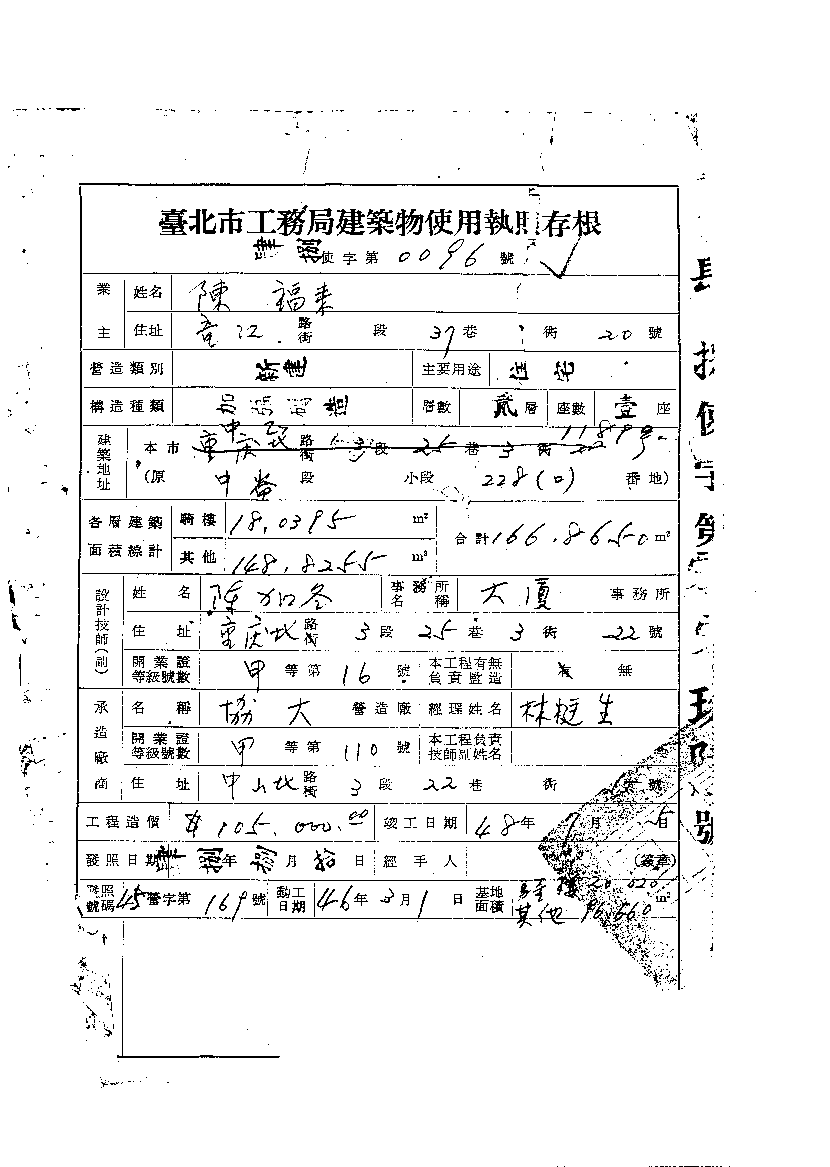 臺北市工務局建築物使用執照存根
肆捌使字第0096號
業主 姓名 陳福来
住址 龍江路街 段 37巷 街 20號
營造類別 新建 主要用途 住宅
構造種類 加強磚造 層數 貳層 座數 壹座
建築地址 本市 重庆北路街 3段 25巷 3街 22號
(原 段 小段 228(0) 番地)
各層建築面積總計 騎樓 18.0395 m² 合計 166.8650 m²
其他 148.8255 m²
設計技師(副) 姓名 陳加冬 事務所名稱 大廈 事務所
住址 重庆北路街 3段 25巷 3街 22號
開業證等級號數 甲等第16號 本工程有無負責監造 無
承造廠商 名稱 協大 營造廠 經理姓名 林挺生
開業證等級號數 甲等第110號 本工程負責技師副姓名
住址 中山北路街 3段 22巷 街 號
工程造價 $105.000.00 竣工日期 48年1月5日
發照日期 肆捌年捌月拾日 經手人 (簽章)
發照號碼 45營字第169號 動工日期 46年3月1日 基地面積 騎樓 20.020
其他 96.660 m²
使字第
號